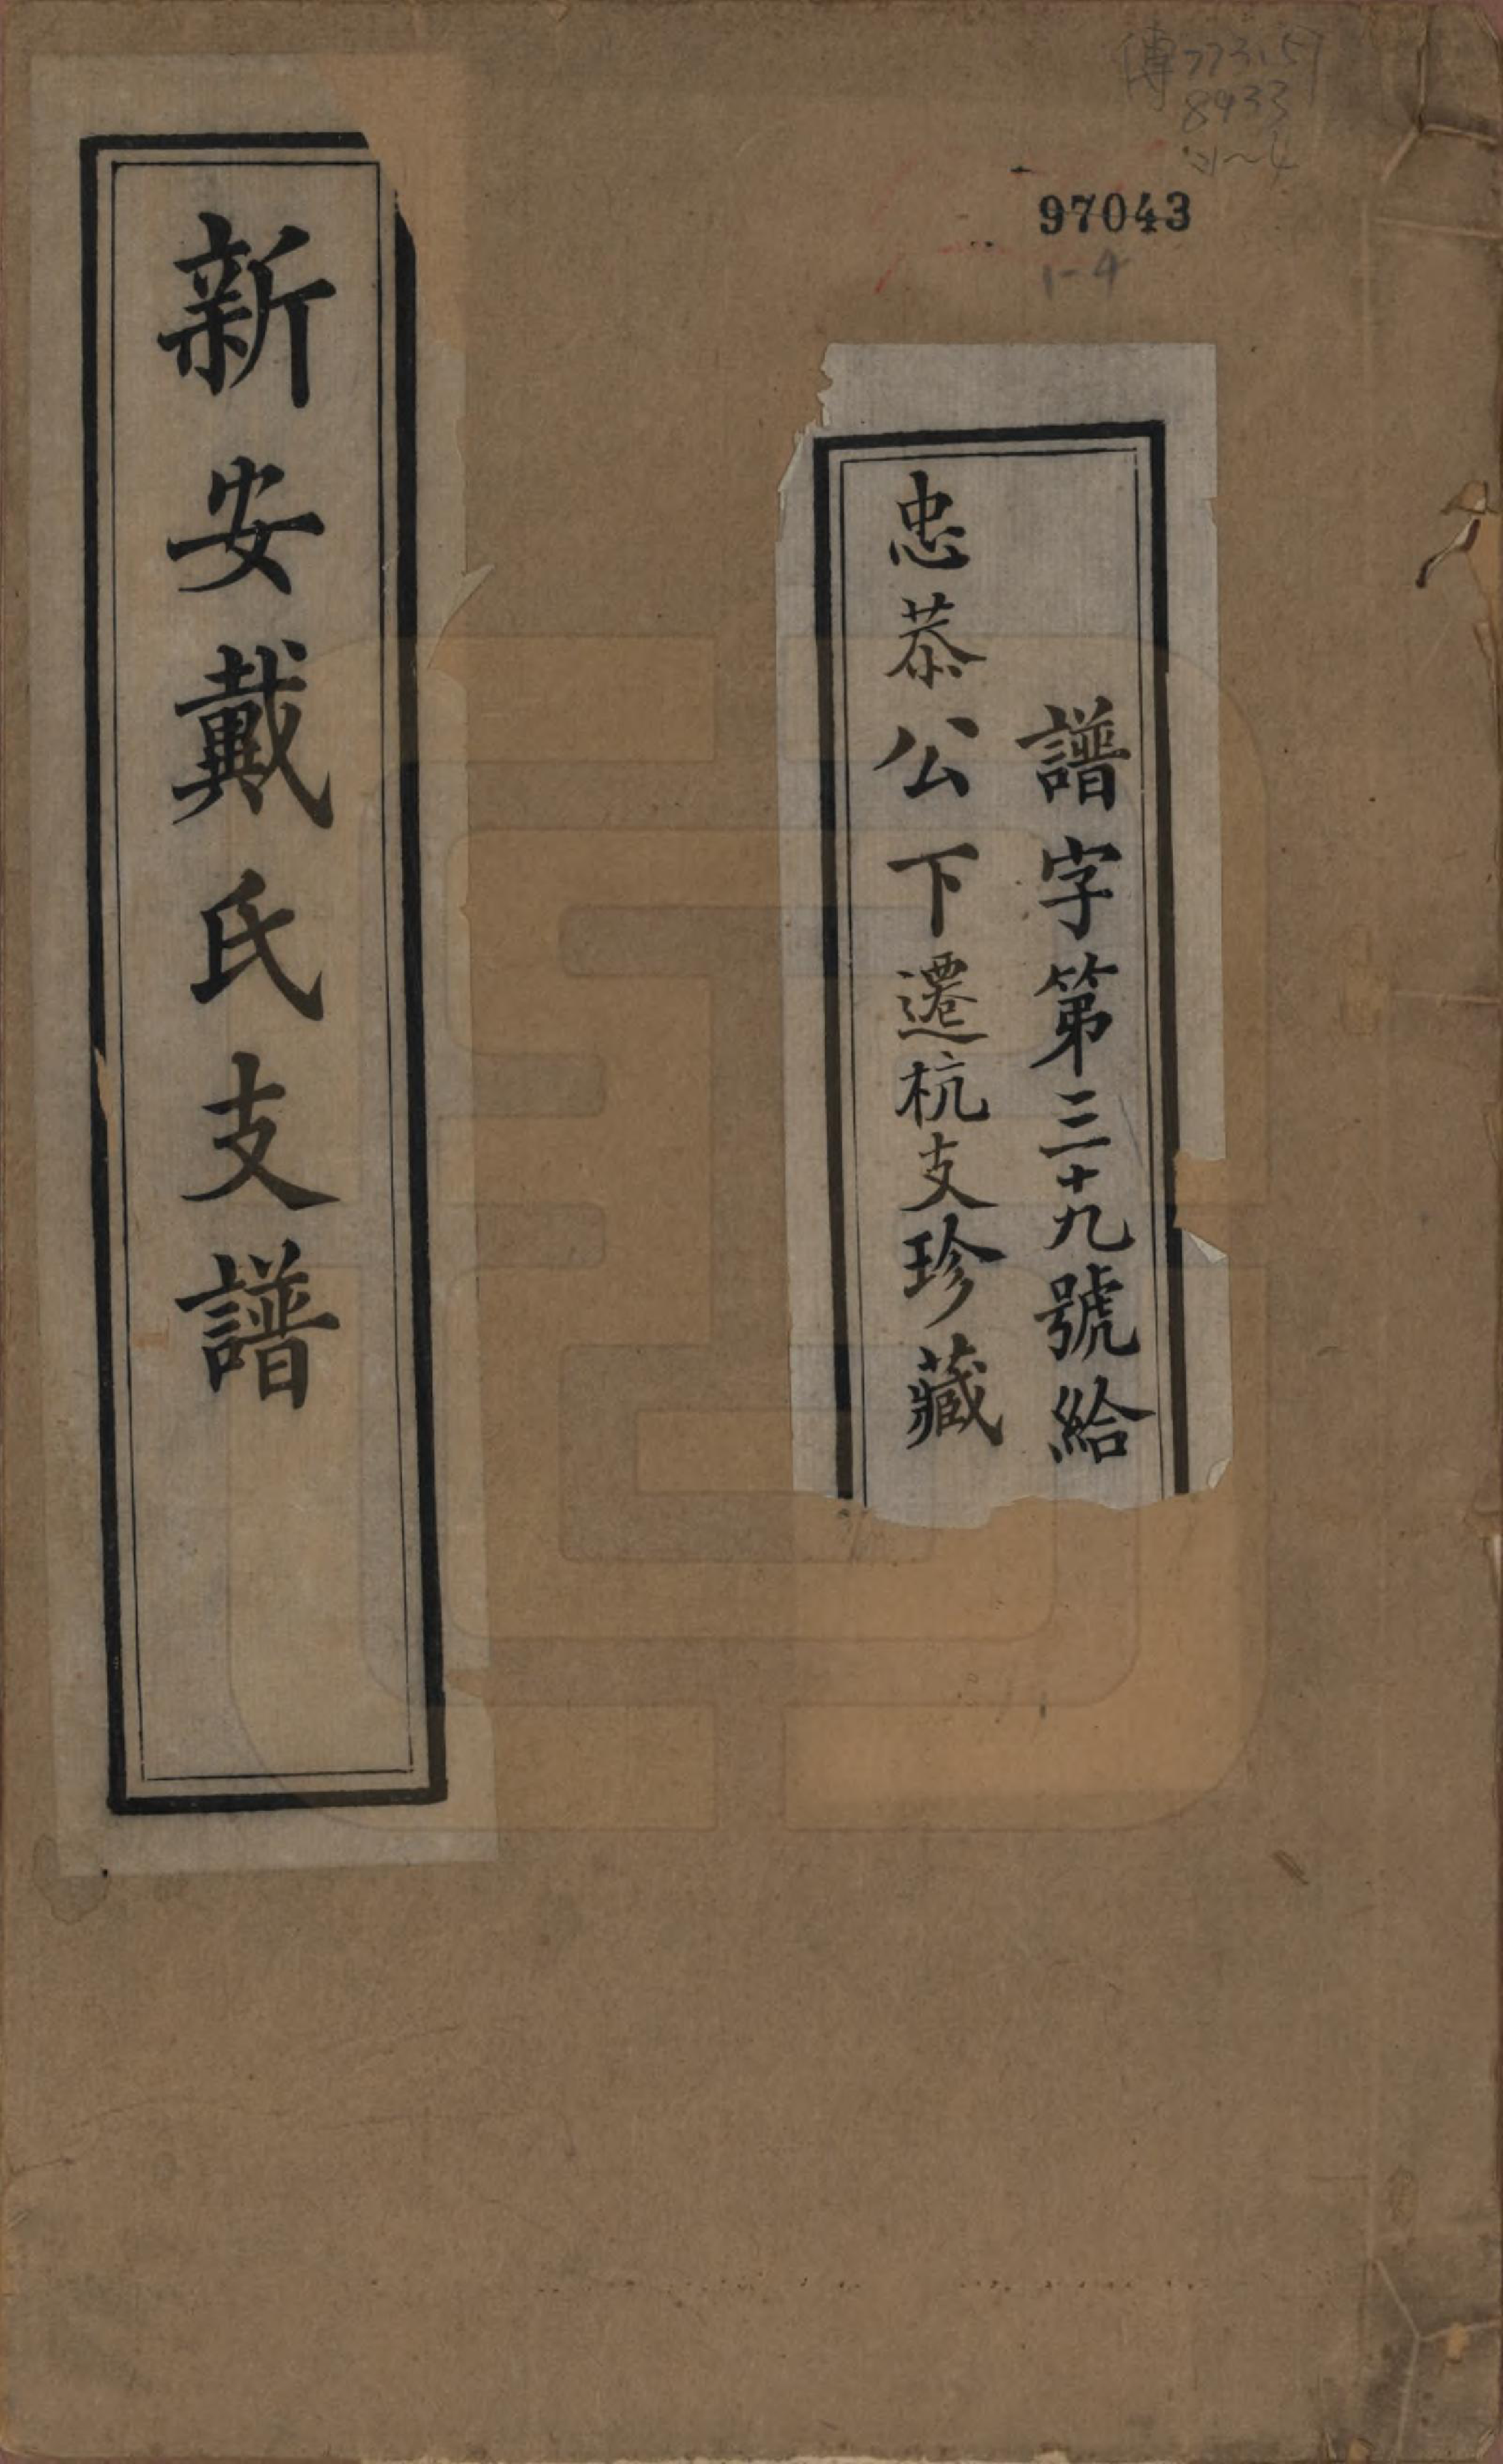 傳773.57
8433
:1~4
97043
1-4
譜字第三十九號給
忠恭公下遷杭支珍藏
新安戴氏支譜